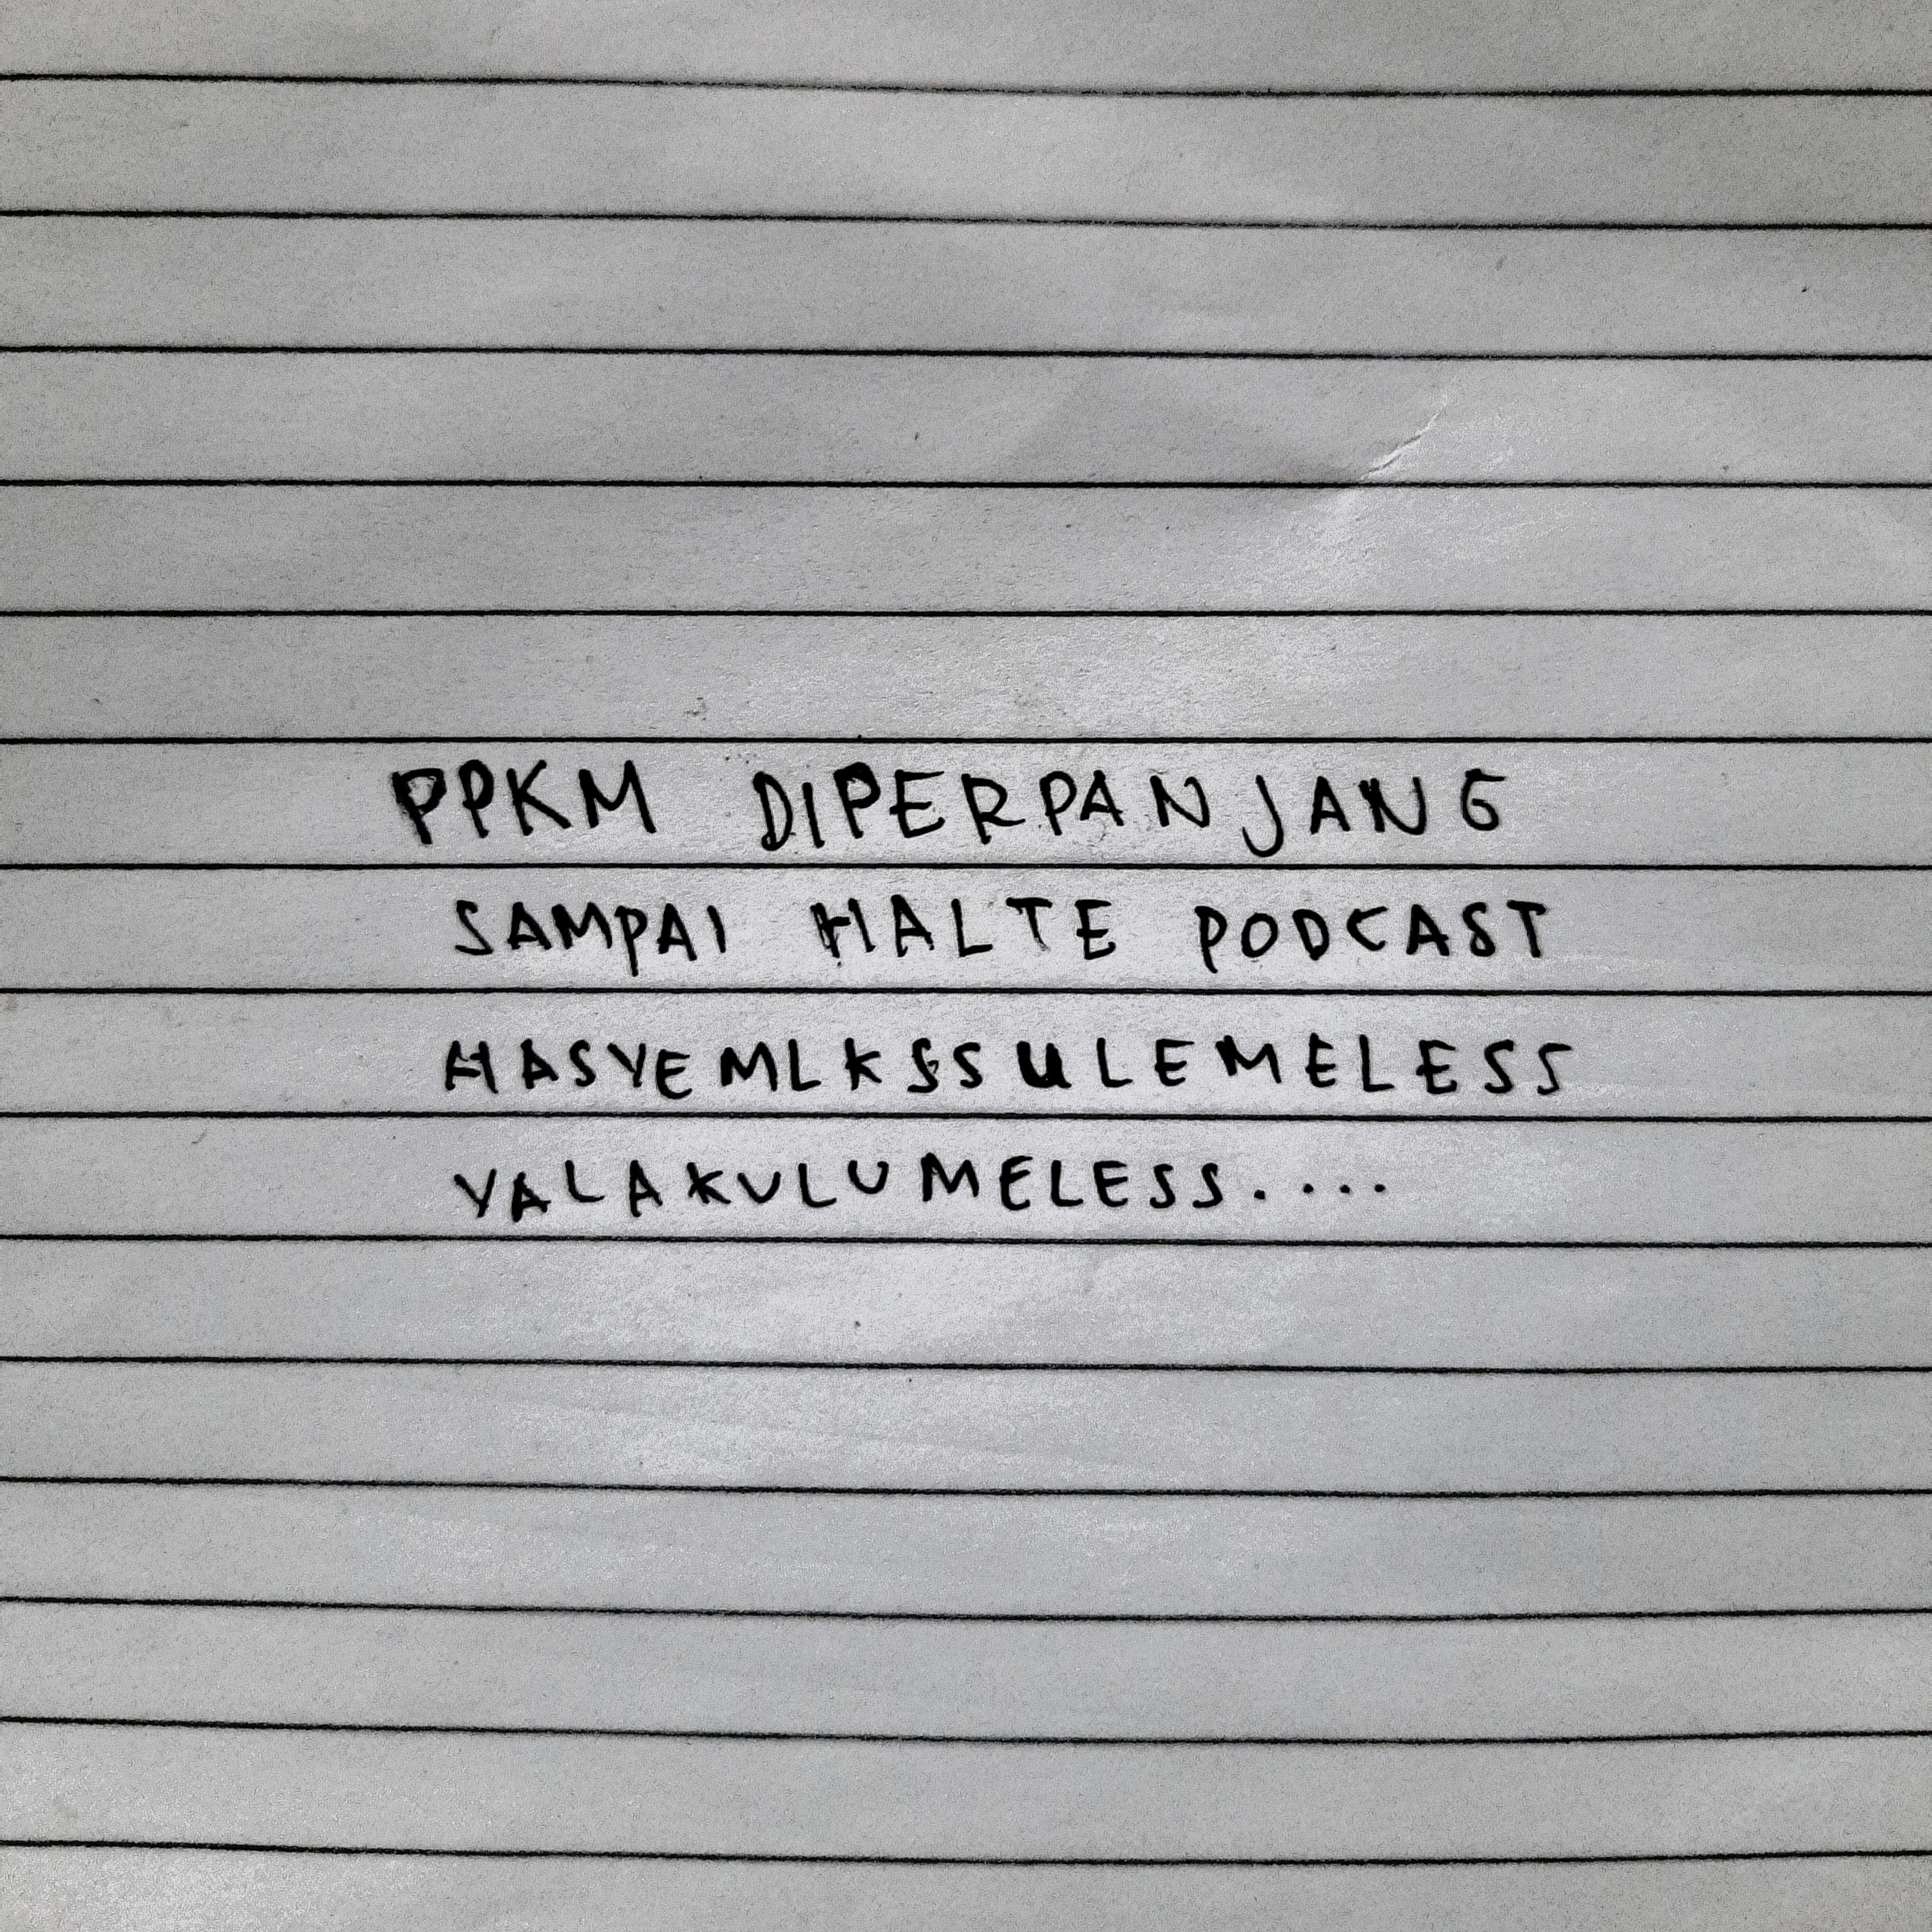 PPKM DIPERPANJANG
SAMPAI HALTE PODCAST
HASYEMLKSSULEMELESS
YALAKULUMELESS....